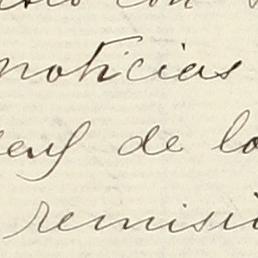 con
noticias
de lo
remisi